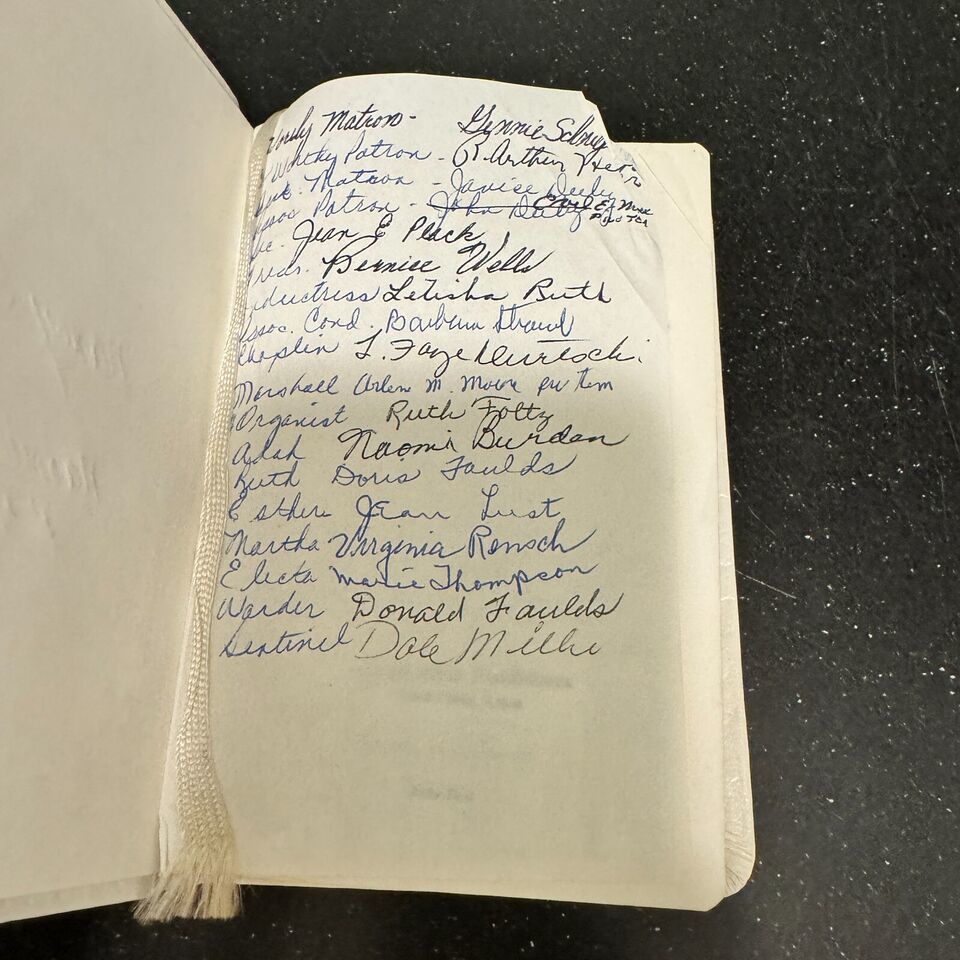 Matron - Gennie
Worthy Patron - R. Arthur
Matron - Janise Deeby
Assoc Patron - John Deeby
Jean E Plack
Treas. Bernice Wells
Conductress Letisha Ruth
Assoc. Cond. Barbara Straul
Chaplin L. Faye Durtschi
Marshall Arlen M. Moore pro tem
Organist Ruth Foltz
Adah Naomi Burdan
Ruth Doris Faulds
Esther Jean Lust
Martha Virginia Rensch
Electa Marie Thompson
Warder Donald Faulds
Sentinel Dale Miller